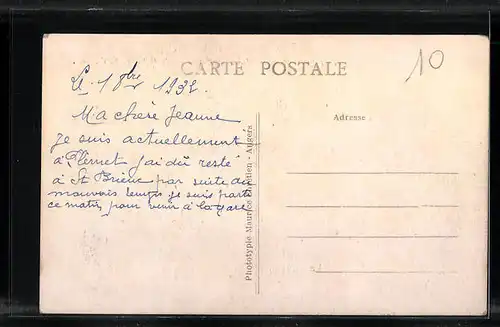 CARTE POSTALE
10
Le 1 8bre 1932.
Ma chère Jeanne
Je suis actuellement
à Plernet J'ai dû resté
à St Brieuc par suite du
mauvais temps je suis parti
ce matin pour venir à la gare
Adresse :
Phototypie Maurice - Angers